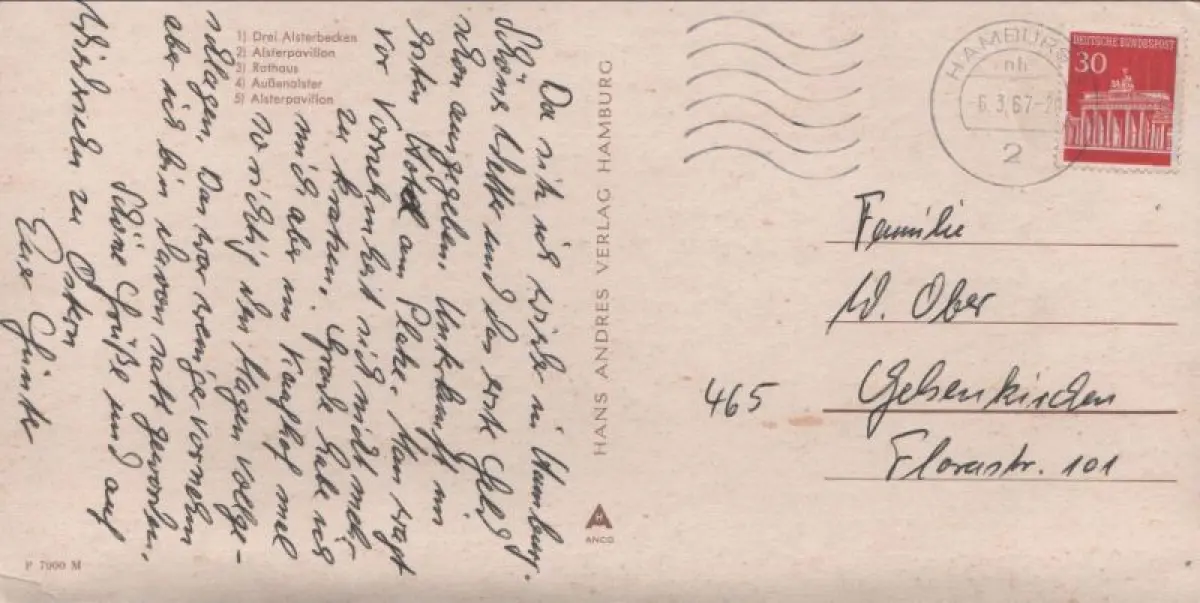 1) Drei Alsterbecken
2) Alsterpavillon
3) Rathaus
4) Außenalster
5) Alsterpavillon
Da sitz ich wieder in Hamburg.
Schönes Wetter und das erste Geld
schon ausgegeben. Unterkunft im
ersten Hotel am Platze. Man wagt
vor Vornehmheit sich nicht mehr
zu kratzen. Grade habe ich
mich aber im Kaufhof mal
so richtig den Magen vollge-
schlagen. Das war weniger vornehm
aber ich bin davon satt geworden.
Schöne Grüße und auf
Wiedersehn zu Ostern
Euer Günter
HANS ANDRES VERLAG HAMBURG
ANCO
P 7000 M
HAMBURG
nh
6.3.67-20
2
DEUTSCHE BUNDESPOST
30
Familie
W. Ober
465 Gelsenkirchen
Florastr. 101